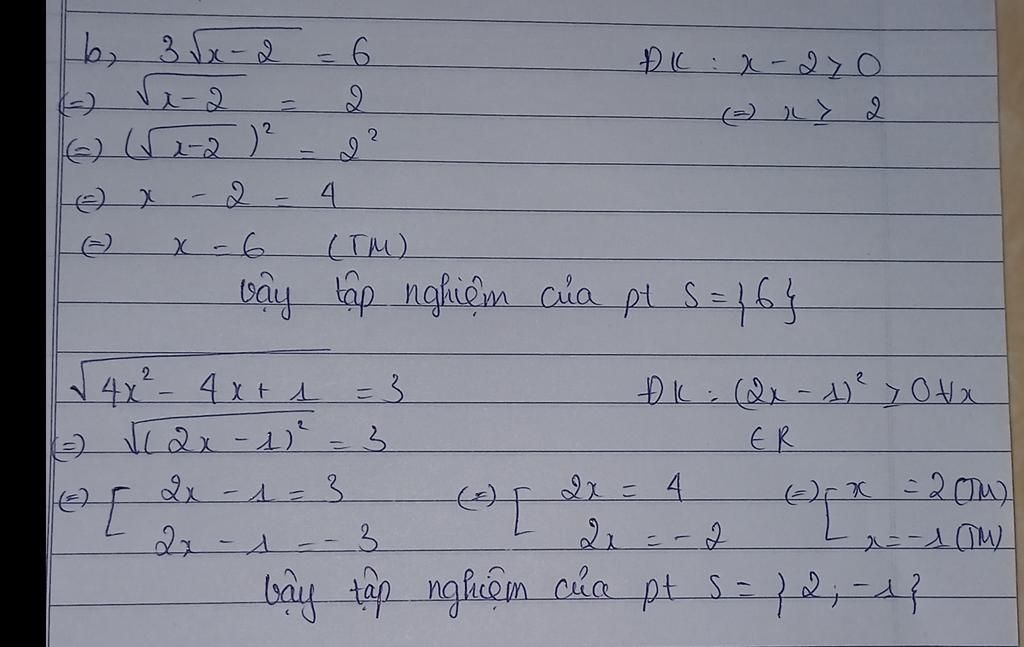 b, 3√(x-2) = 6 ĐK : x - 2 ≥ 0
(=) √(x-2) = 2 (=) x ≥ 2
(=) (√(x-2))² = 2²
(=) x - 2 = 4
(=) x = 6 (TM)
Vậy tập nghiệm của pt S = {6}
√(4x² - 4x + 1) = 3 ĐK : (2x - 1)² ≥ 0 ∀x
(=) √((2x - 1)²) = 3 ∈ R
(=) [ 2x - 1 = 3 (=) [ 2x = 4 (=) [ x = 2 (TM)
2x - 1 = - 3 2x = - 2 x = - 1 (TM)
Vậy tập nghiệm của pt S = {2 ; -1}